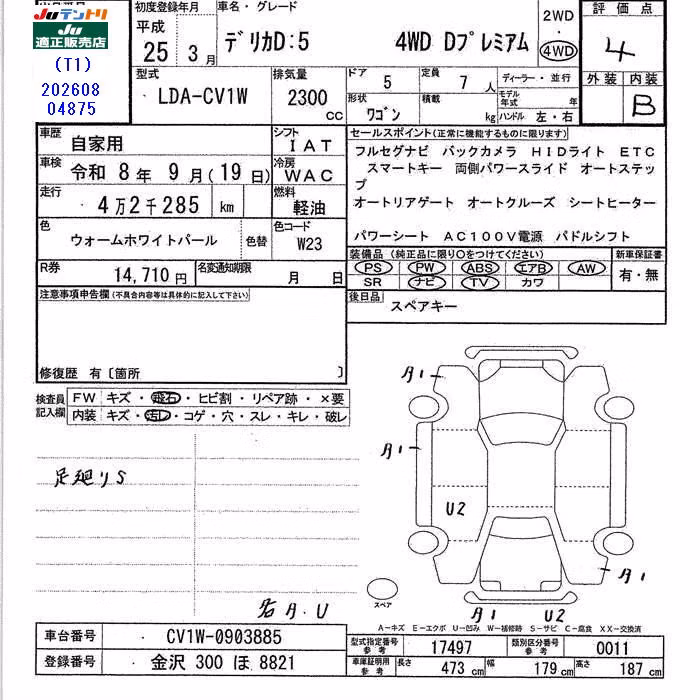 JUテントリ
JU
適正販売店
(T1)
202608
04875
初度登録年月
平成
25 年 3 月
車名・グレード
デリカD:5 4WD Dプレミアム
2WD
・
4WD
評価点
4
外装 内装
B
型式
LDA-CV1W
排気量
2300 cc
ドア
5
定員
7 人
形状
ワゴン
積載
kg
ディーラー・並行
モデル年式 年
ハンドル 左・右
車歴
自家用
シフト
IAT
車検
令和 8 年 9 月 (19 日)
冷房
WAC
走行
4万2千285 km
燃料
軽油
色
ウォームホワイトパール
色替
色コード
W23
R券
14,710 円
名変通知期限
月 日
セールスポイント(正常に機能するものに限ります)
フルセグナビ バックカメラ HIDライト ETC
スマートキー 両側パワースライド オートステッ
プ
オートリアゲート オートクルーズ シートヒーター
パワーシート AC100V電源 パドルシフト
装備品(純正品に限り○をつけてください)
PS PW ABS エアB AW
SR ナビ TV カワ
新車保証書
有・無
後日品
スペアキー
注意事項申告欄(不具合内容等は具体的に記入して下さい)
修復歴 有〔箇所 〕
検査員
記入欄
FW キズ・飛石・ヒビ割・リペア跡・×要
内装 キズ・汚レ・コゲ・穴・スレ・キレ・破レ
足廻りS
各A.U
A1
A1
U2
A1
A1 U2
スペア
A-キズ E-エクボ U-凹み W-補修跡 S-サビ C-腐食 XX-交換済
車台番号
CV1W-0903885
登録番号
金沢 300 ほ 8821
型式指定番号
参考
17497
類別区分番号
参考
0011
車庫証明用
参考
長さ
473 cm
幅
179 cm
高さ
187 cm